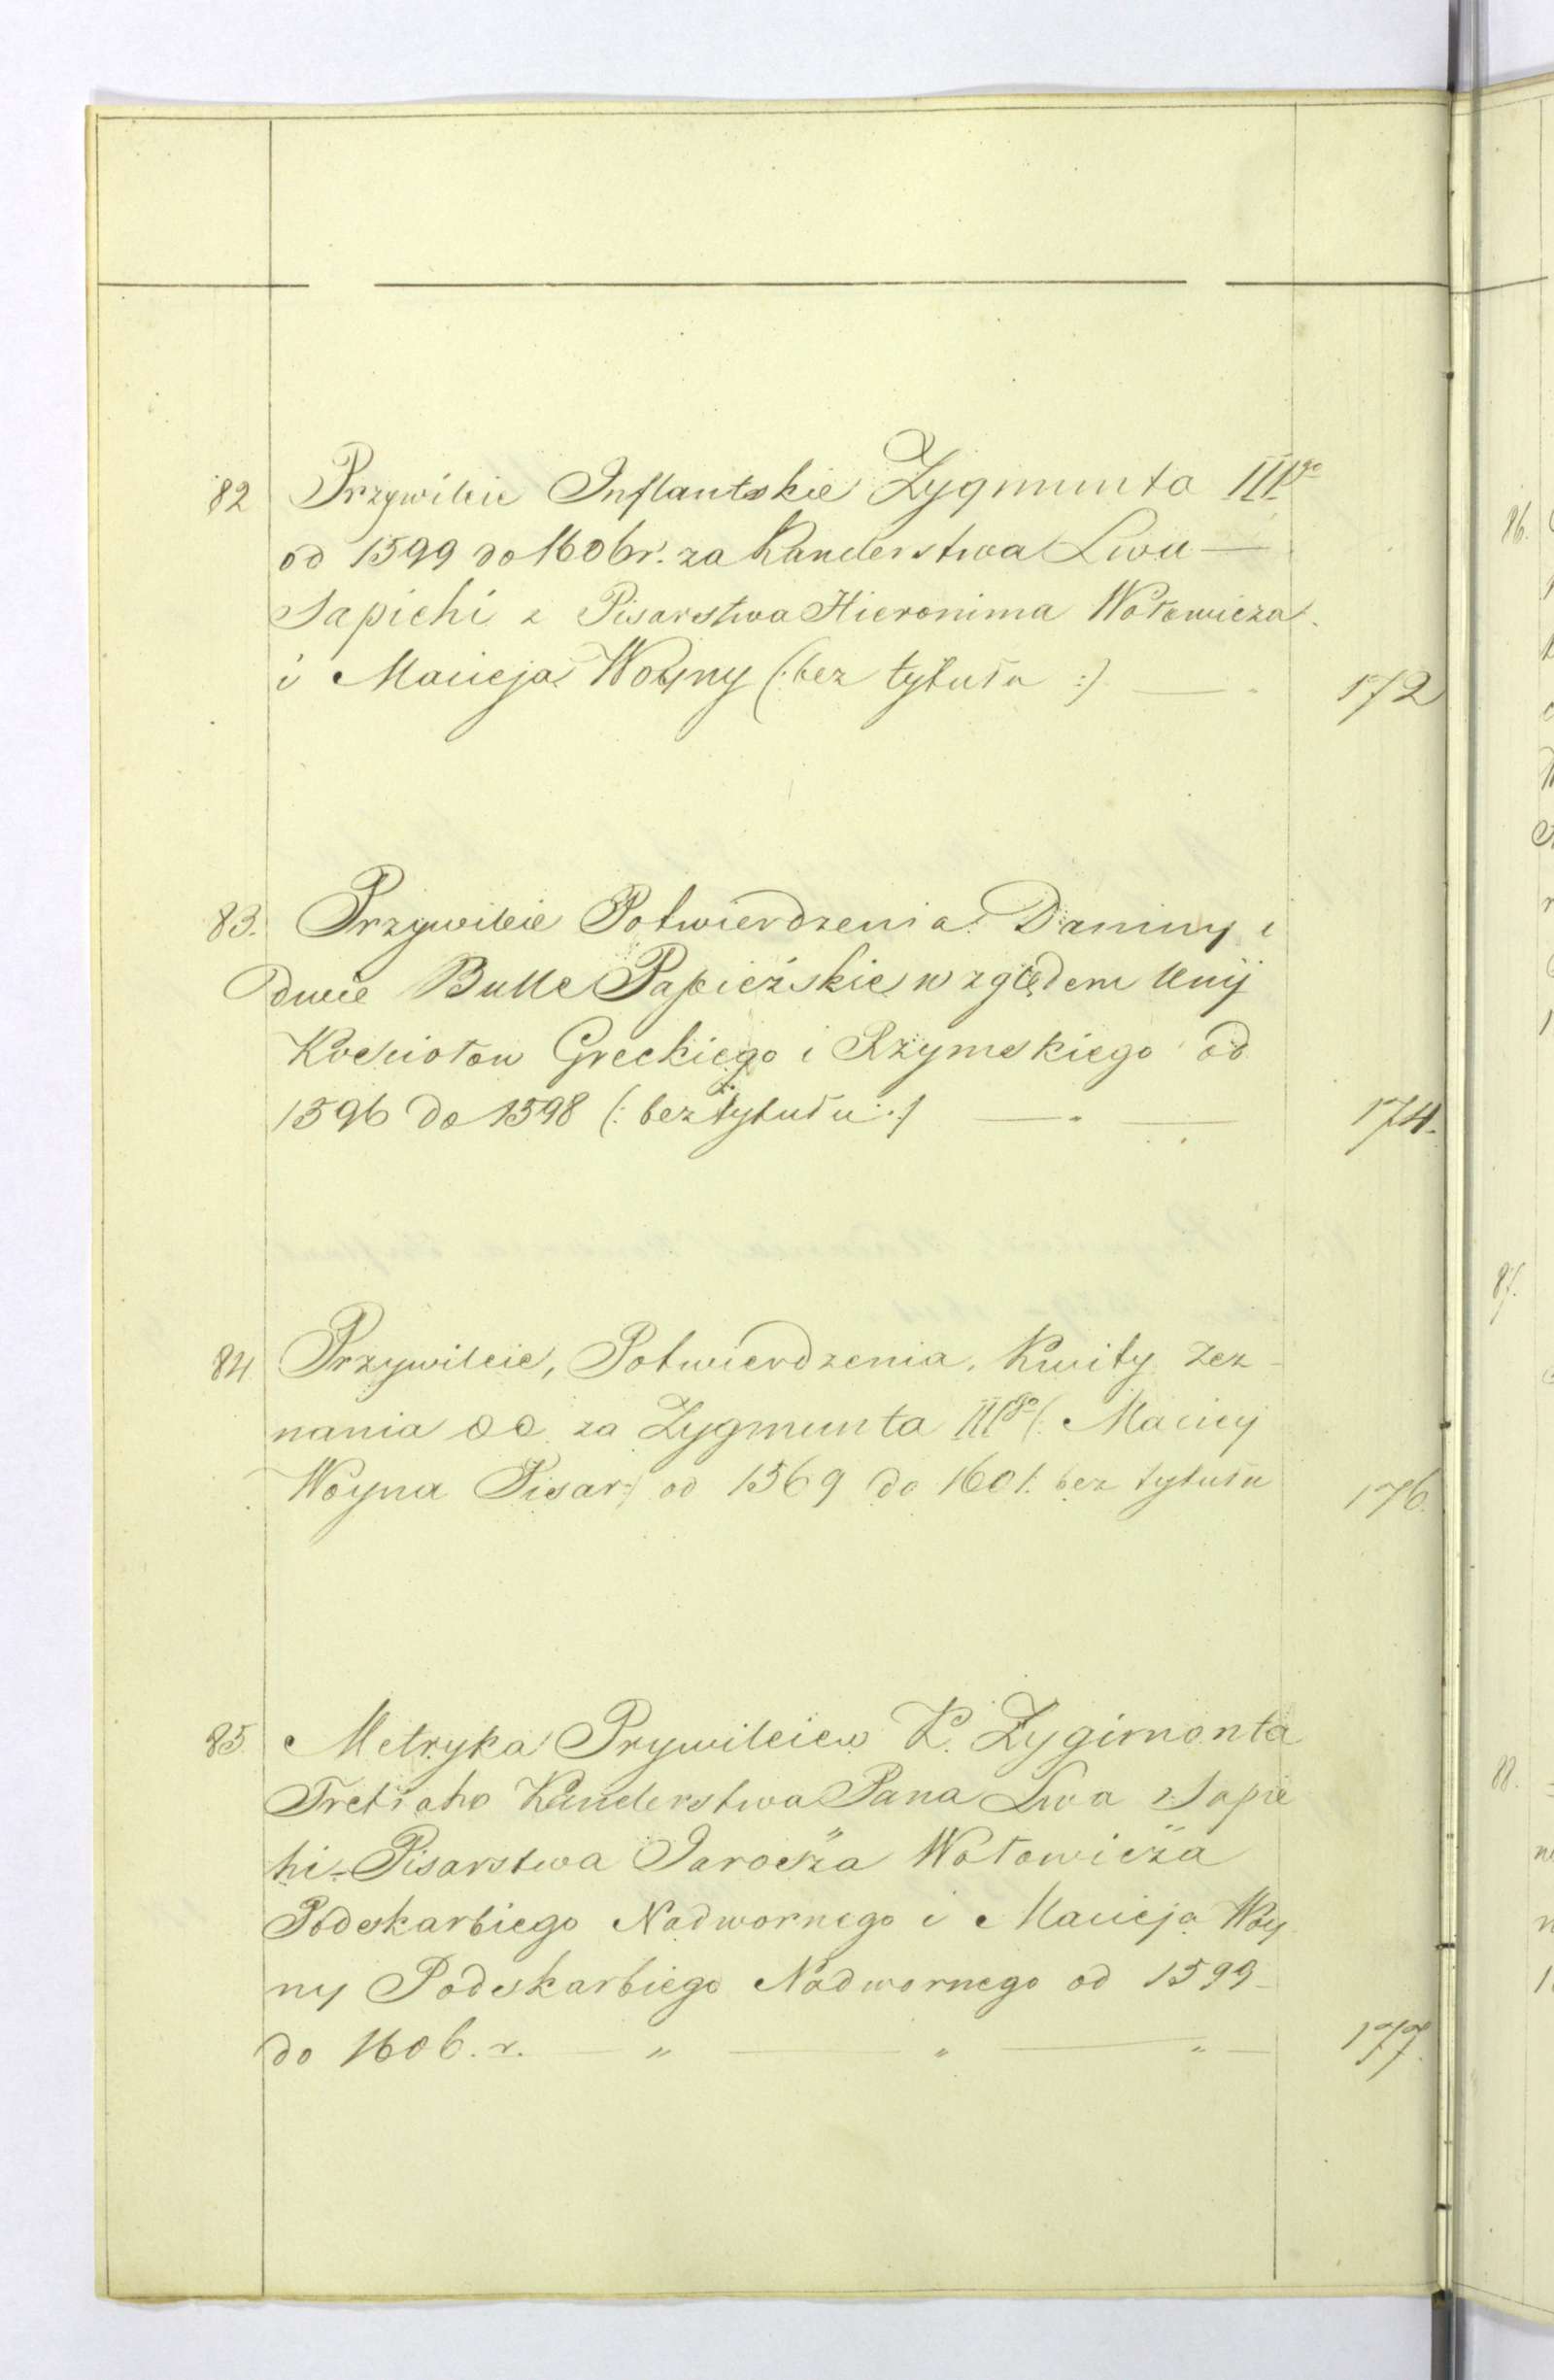 82 Przywileie Inflantskie Zygmunta III^go
od 1599 do 1606 r. za Kanclerstwa Lwa —
Sapiehi z Pisarstwa Hieronima Wołowicza
i Macieja Woyny (: bez tytułu :) — 172
83. Przywileie Potwierdzenia Daniny i
dwie Bulle Papieźskie względem Unij
Kościołow Greckiego i Rzymskiego od
1596 do 1598 (: bez tytułu :) — — 174.
84 Przywileie, Potwierdzenia, Kwity zez-
nania za Zygmunta III^go (: Maciej
Woyna Pisar :) od 1569 do 1601. bez tytułu 176.
85. Metryka Prywileiew K. Zygimonta
Tretiaho Kanclerstwa Pana Lwa Sapie
hi Pisarstwa Jarosza Wołowicza
Podskarbiego Nadwornego i Macieja Woy
ny Podskarbiego Nadwornego od 1599
do 1606. r. — " — " — " — 177.
86.
87.
88.